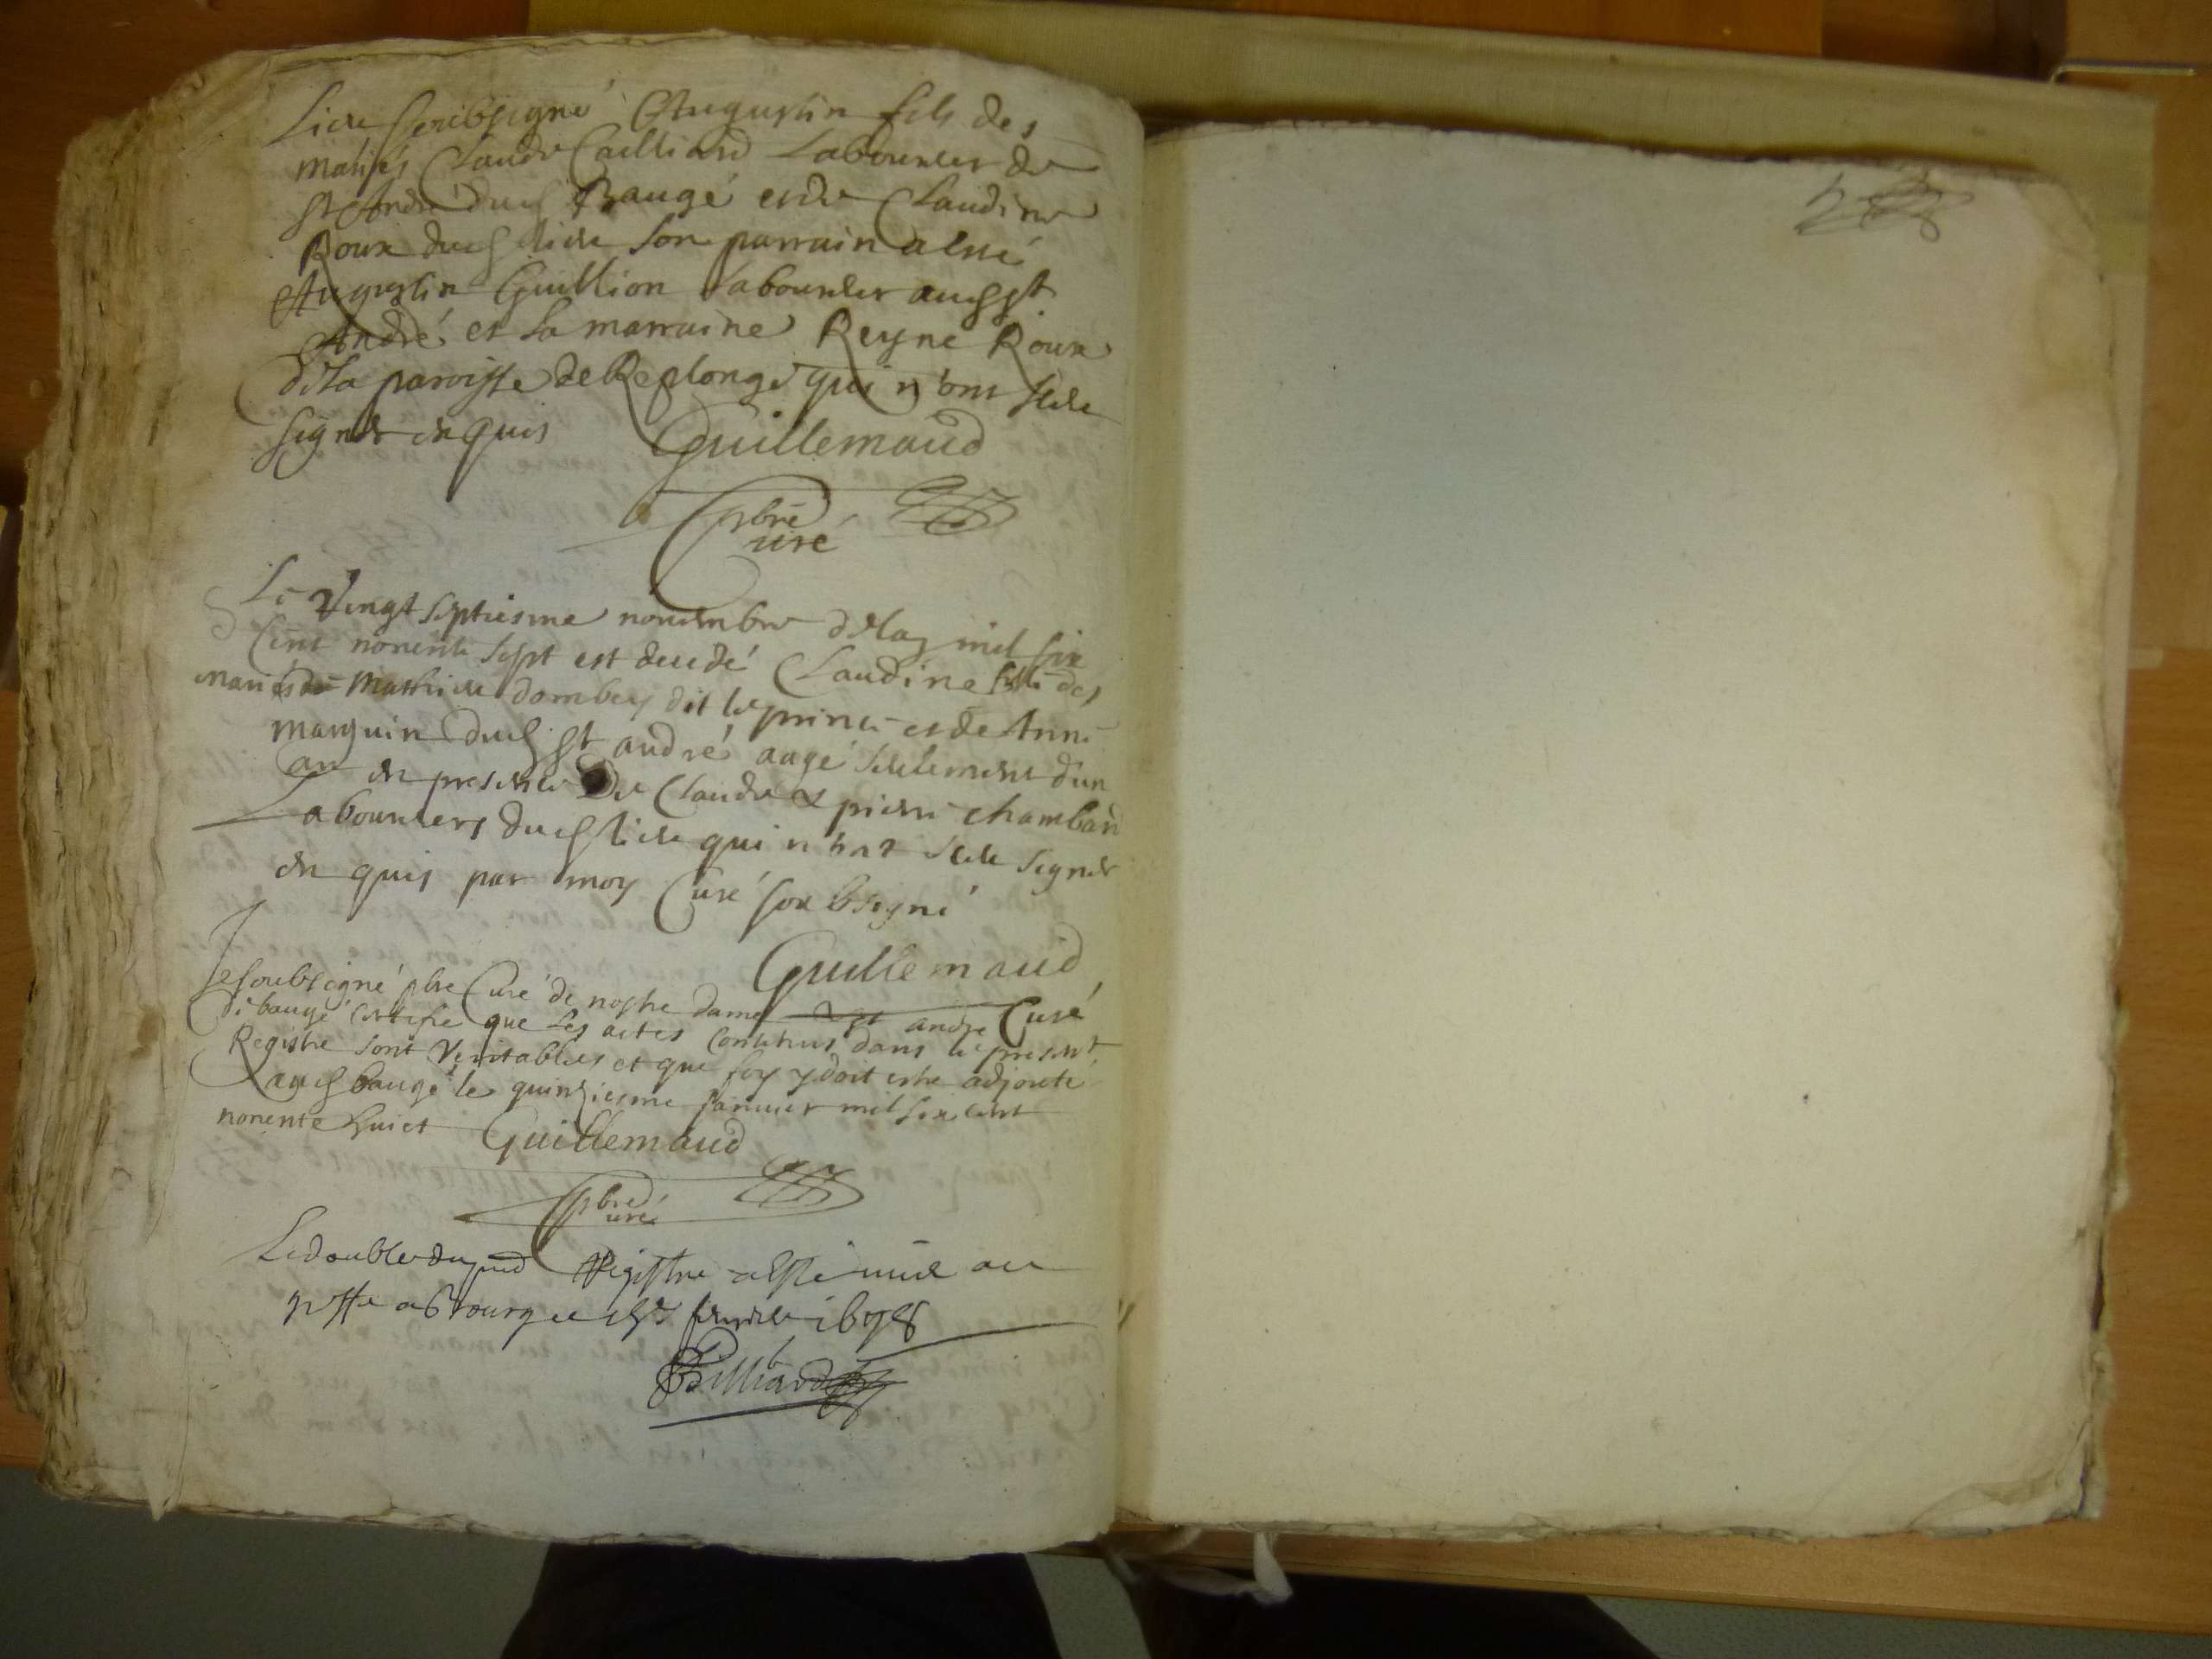 lieu soubsigné Augustin fils des
mariés Claude Cailliard Laboureur de
st André dud Baugé et de Claudine
Roux dud lieu son parrain a esté
Augustin Guillion Laboureur aud st
André et sa marraine Reyne Roux
de la paroisse de Replonge qui n'ont sceu
signer enquis Guillemaud
pbre
Curé
Le Vingt septiesme novembre de lan mil six
Cent nonente sept est decedé Claudine fille des
mariés de Mathieu dombey dit le prince et de Anne
manguin dud st andré aagé seulement d'un
an en presence de Claude & pierre chamband
Laboureurs dud lieu qui n'ont sceu signer
enquis par moy Curé soubsigné
Guillemaud
Curé
Je soubsigné pbre Curé de nostre dame & st andre
de baugé certifie que les actes contenus dans le present
Registre sont Veritables et que foy y doit estre adjouté
aud baugé le quinziesme Janvier mil six cent
nonente huict Guillemaud
pbre
Curé
Le double du pnt Registre a esté mis au
greffe a Bourg ce fevrier 1698
Billiard